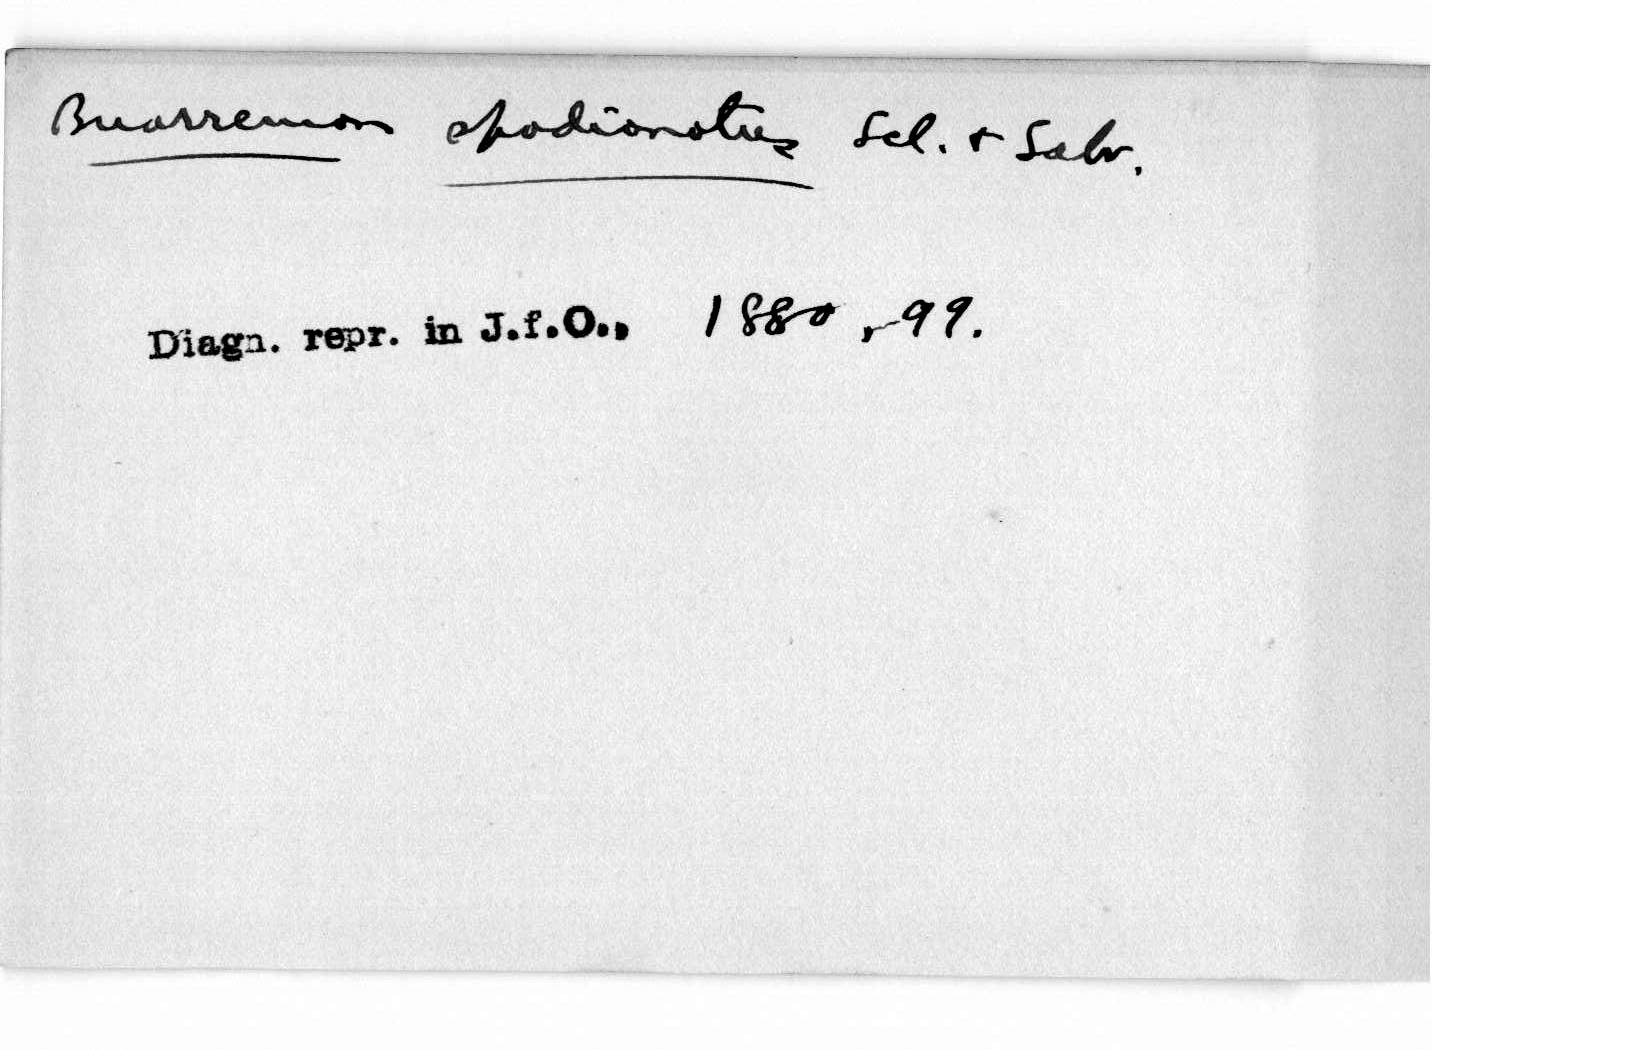 Buarremon spodionotus Scl. & Salv.
Diagn. repr. in J.f.O., 1880, 99.